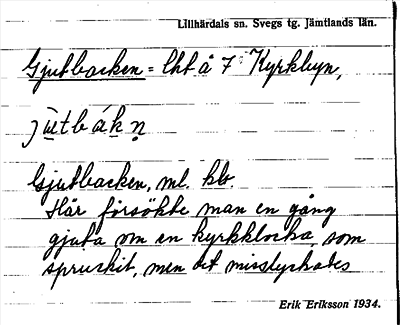 Lillhärdals sn. Svegs tg. Jämtlands län.
Gjutbacken = lht å 7 Kyrkbyn,
jùtbákn̥
Gjutbacken, ml. kb.
Här försökte man en gång
gjuta om en kyrkklocka, som
spruckit, men det misslyckades
Erik Eriksson 1934.